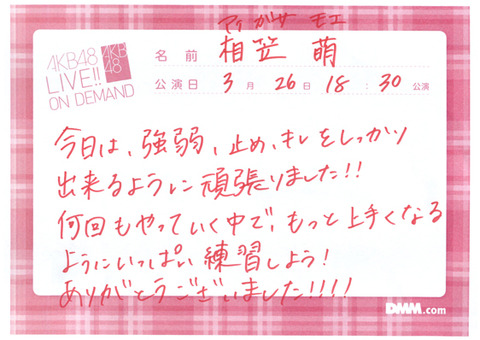 アイ がサ モエ
AKB48
LIVE!!
ON DEMAND
AKB
48
名 前 相笠 萌
公演日 3 月 26 日 18 : 30 公演
今日は、強弱、止め、キレをしっかり
出来るように頑張りました!!
何回もやっていく中で、もっと上手くなる
ようにいっぱい練習しよう!
ありがとうございました!!!!
DMM.com